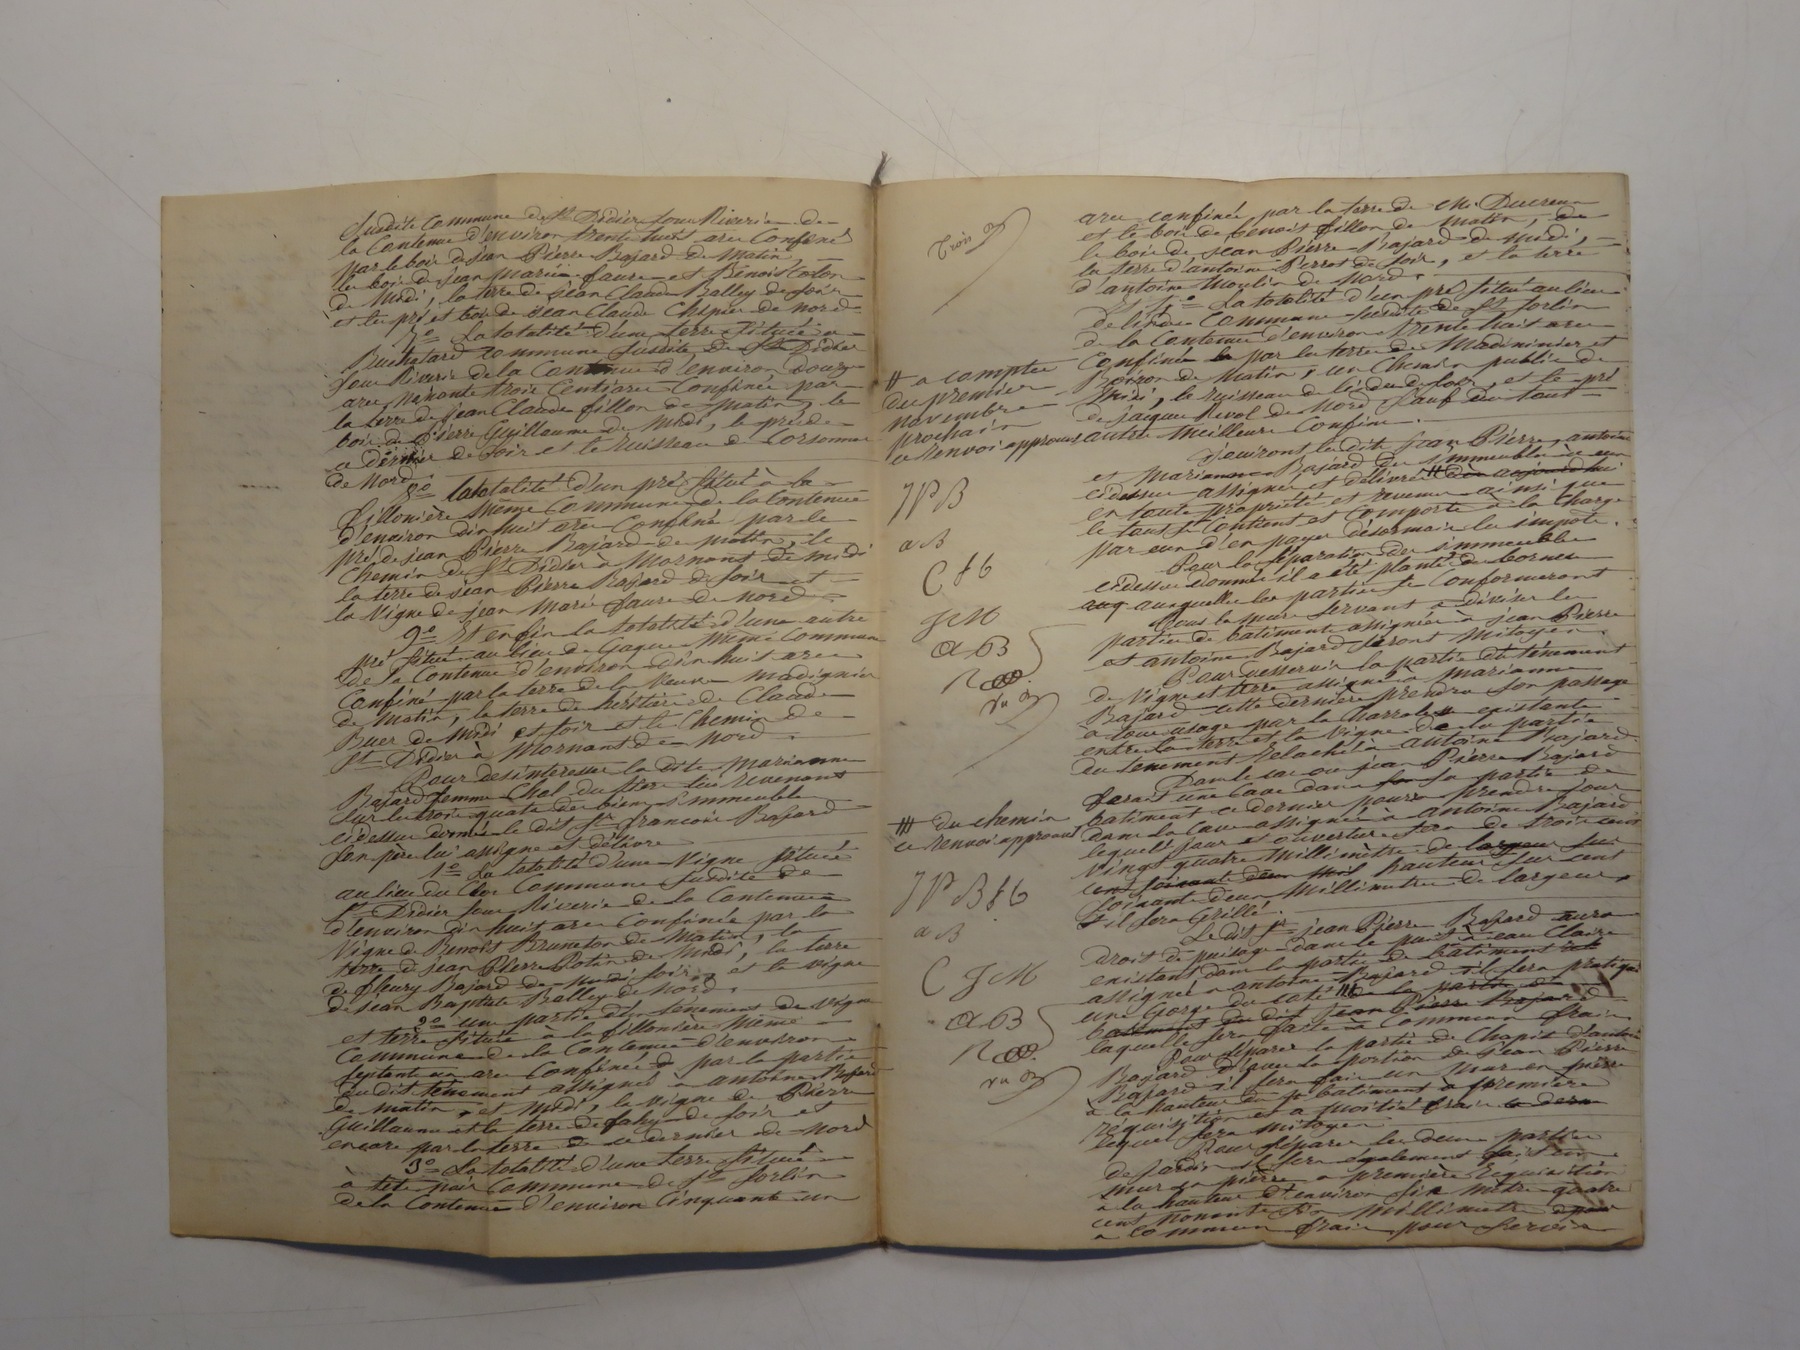 susdite Commune de St Didier sous Riverie de
la Contenue d'environ trente huit ares Confiné
par le bois de jean Pierre Bajard de Matin
les bois de jean Marie faure et Benoist Colon
de Midi, la terre de jean Claude Balley de soir
et les pré et bois de jean Claude Chipier de nord
7º La totalité d'une terre située a
Buchatard Commune susdite de St Didier
sous Riverie de la Contenue d'environ douze
ares nonante trois Centiares Confinée par
la terre de jean Claude fillon de Matin, le
bois de Pierre Guillaume de Midi, le pré de
de soir et le Ruisseau de Corsonna
de Nord.
8º La totalité d'un pré situé à la
fillonière même Commune de la Contenue
d'environ dix huit ares Confiné par le
pré de jean Pierre Bajard de matin, le
Chemin de St Didier à Mornant de midi
la terre de jean Pierre Bajard de soir et
la Vigne de jean Marie faure de nord
9º Et enfin la totalité d'une autre
pré situé au lieu de Gaque même Commune
de la Contenue d'environ dix huit ares
Confiné par la terre de la Veuve Madignier
de Matin, la terre des héritiers de Claude
Buer de Midi et soir et le Chemin de
St Didier à Mornant de Nord.
Pour desintéresser la dite Marianne
Bajard femme Chol du tiers lui Revenant
sur les trois quarts des biens immeubles
cidessus donnés le dit sr François Bajard
son père lui assigne et délivre
1º La totalité d'une Vigne située
au lieu du Clos Commune susdite de
St Didier sous Riverie de la Contenue
d'environ dix huit ares Confinée par la
Vigne de Benoist Bruneton de Matin, la
terre de jean Pierre Potin de Midi, la terre
de fleury Bajard de soir, et la vigne
de jean Baptiste Balley de Nord.
2º une partie d'un tènement de vigne
et terre situé à la fillonière même
Commune de la Contenue d'environ
septante un ares Confinée par la partie
du dit tènement assignée à antoine Bajard
de matin, et Midi, la vigne de Pierre
Guillaume et la terre de fahy de soir et
encore par la terre de ce dernier de Nord
3º La totalité d'une terre située
à Commune de St Sorlin
de la Contenue d'environ Cinquante un
trois
ares confinée par la terre de Mr Ducreux
et le bois de benoist fillon de Matin, de
le bois de jean Pierre Bajard de midi,
la terre d'antoine Pierrot de soir, et la terre
d'antoine Moulin de Nord.
Et 4º La totalité d'un pré situé au lieu
de Commune susdite de St Sorlin
de la Contenue d'environ trente huit ares
Confiné par les terres de Madinnier et
Boiron de Matin, un Chemin public de
Midi, le Ruisseau de soir, et le pré
de jacques Rivol de Nord. Sauf du tout
autres meilleurs Confins.
# a compter
du premier
novembre
prochain
ce renvoi approuvé
Jouiront les dits jean Pierre, antoine
et Marianne Bajard des immeubles
cidessus assignés et délivrés # dès aujourd'hui
en toute propriété et revenus ainsi que
le tout se Contient et Comporte à la Charge
par eux d'en payer désormais les impots.
JPB
aB
C f b
JM
AB
Pour la séparation des immeubles
cidessus donnés il a été planté des bornes
auxquelles les parties se Conformeront
Tous les murs servant à diviser les
parties de bâtiment assignées à jean Pierre
et antoine Bajard seront mitoyens.
Pour desservir la partie du tènement
de Vigne et terre assignée à marianne
Bajard cette dernière prendra son passage
à tous usages par la Charrale existante
entre la terre et la Vigne de la partie
du tènement Relaché à antoine Bajard
Dans le cas ou jean Pierre Bajard
ferait une Cave dans sa partie de
batiment ce dernier pourra prendre jour
dans la Cave assignée à antoine Bajard
lequel jour et ouverture sera de trois cent
vingt quatre Millimètres de largeur sur
cent soixante deux hauteur sur cent
soixante deux Millimètres de largeur
et il sera Grillé.
# du chemin
ce renvoi approuvé
JPB f b
aB
C JM
AB
Le dit sr jean Pierre Bajard aura
droit de puisage dans le puits à eau Claire
existant dans la partie de bâtiment
assignée à antoine Bajard il sera pratiqué
une Gorge du coté # de la partie de
batiment du dit Jean Pierre Bajard
laquelle sera faite à Communs frais
Pour séparer la partie de Chapit d'antoine
Bajard d'avec la portion de jean Pierre
Bajard il sera fait un Mur en pierre
à la hauteur du bâtiment à première
réquisition et à moitié frais
lequel sera mitoyen
Pour séparer les deux parties
de jardin il sera également fait un
mur en pierre a première Réquisition
à la hauteur d'environ six mètres quatre
cent Nonante six millimètres
à communs frais pour servir